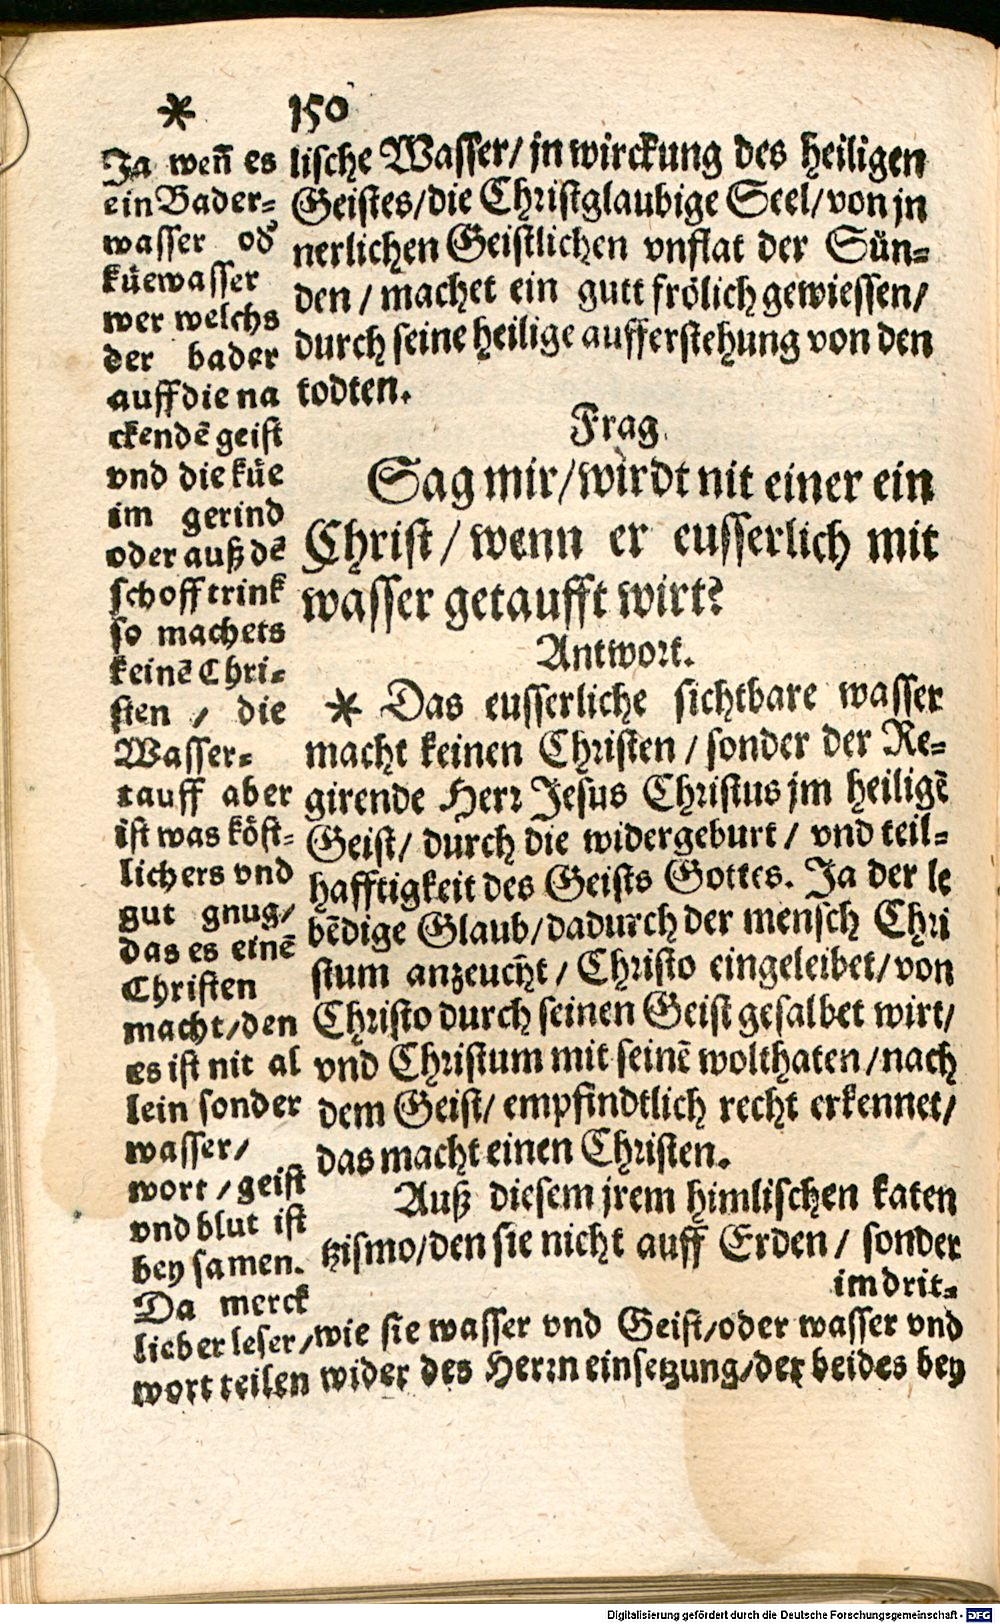 150
lische Wasser/ jn wirckung des heiligen
Geistes/die Christglaubige Seel/von jn
nerlichen Geistlichen vnflat der Sün-
den / machet ein gutt frölich gewiessen/
durch seine heilige aufferstehung von den
todten.
Frag.
Sag mir/wirdt nit einer ein
Christ / wenn er eusserlich mit
wasser getaufft wirt?
Antwort.
* Das eusserliche sichtbare wasser
macht keinen Christen / sonder der Re-
girende Herr Jesus Christus jm heiligē
Geist/ durch die widergeburt / vnd teil-
hafftigkeit des Geists Gottes. Ja der le
bēdige Glaub/dadurch der mensch Chri
stum anzeucht / Christo eingeleibet/von
Christo durch seinen Geist gesalbet wirt/
vnd Christum mit seinē wolthaten/nach
dem Geist/ empfindtlich recht erkennet/
das macht einen Christen.
Auß diesem jrem himlischen katen
tzismo/den sie nicht auff Erden / sonder
im drit-
*
Ja weñ es
ein Bader-
wasser od'
küewasser
wer welchs
der bader
auff die na
ckendē geist
vnd die küe
im gerind
oder auß dē
schoff trink
so machets
keinē Chri-
sten / die
Wasser-
tauff aber
ist was köst-
lichers vnd
gut gnug/
das es einē
Christen
macht/den
es ist nit al
lein sonder
wasser/
wort / geist
vnd blut ist
bey samen.
Da merck
lieber leser/wie sie wasser vnd Geist/oder wasser vnd
wort teilen wider des Herrn einsetzung/der beides bey
Digitalisierung gefördert durch die Deutsche Forschungsgemeinschaft - DFG